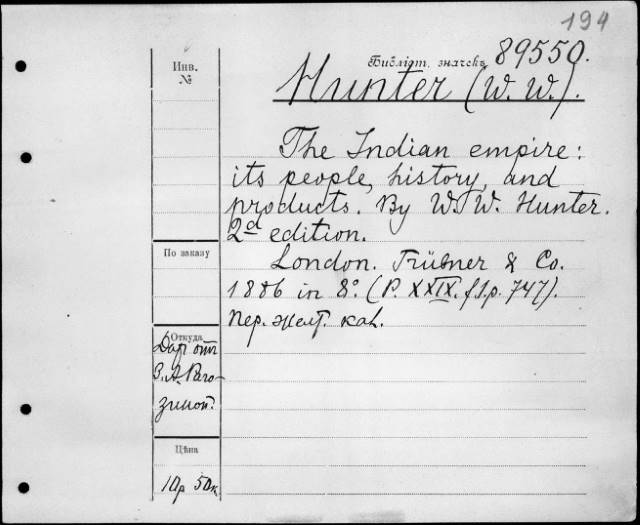 194
Библіот. значекъ 89550.
Инв.
№
Hunter (W. W.).
The Indian empire:
its people, history, and
products. By W. W. Hunter.
2d edition.
По заказу
London. Trübner & Co.
1886 in 8°. (P. XXIX. f.l.p. 747).
Пер. желт. кал.
Откуда
Даръ отъ
З. А. Раго-
зиной.
Цѣна
10р 50к